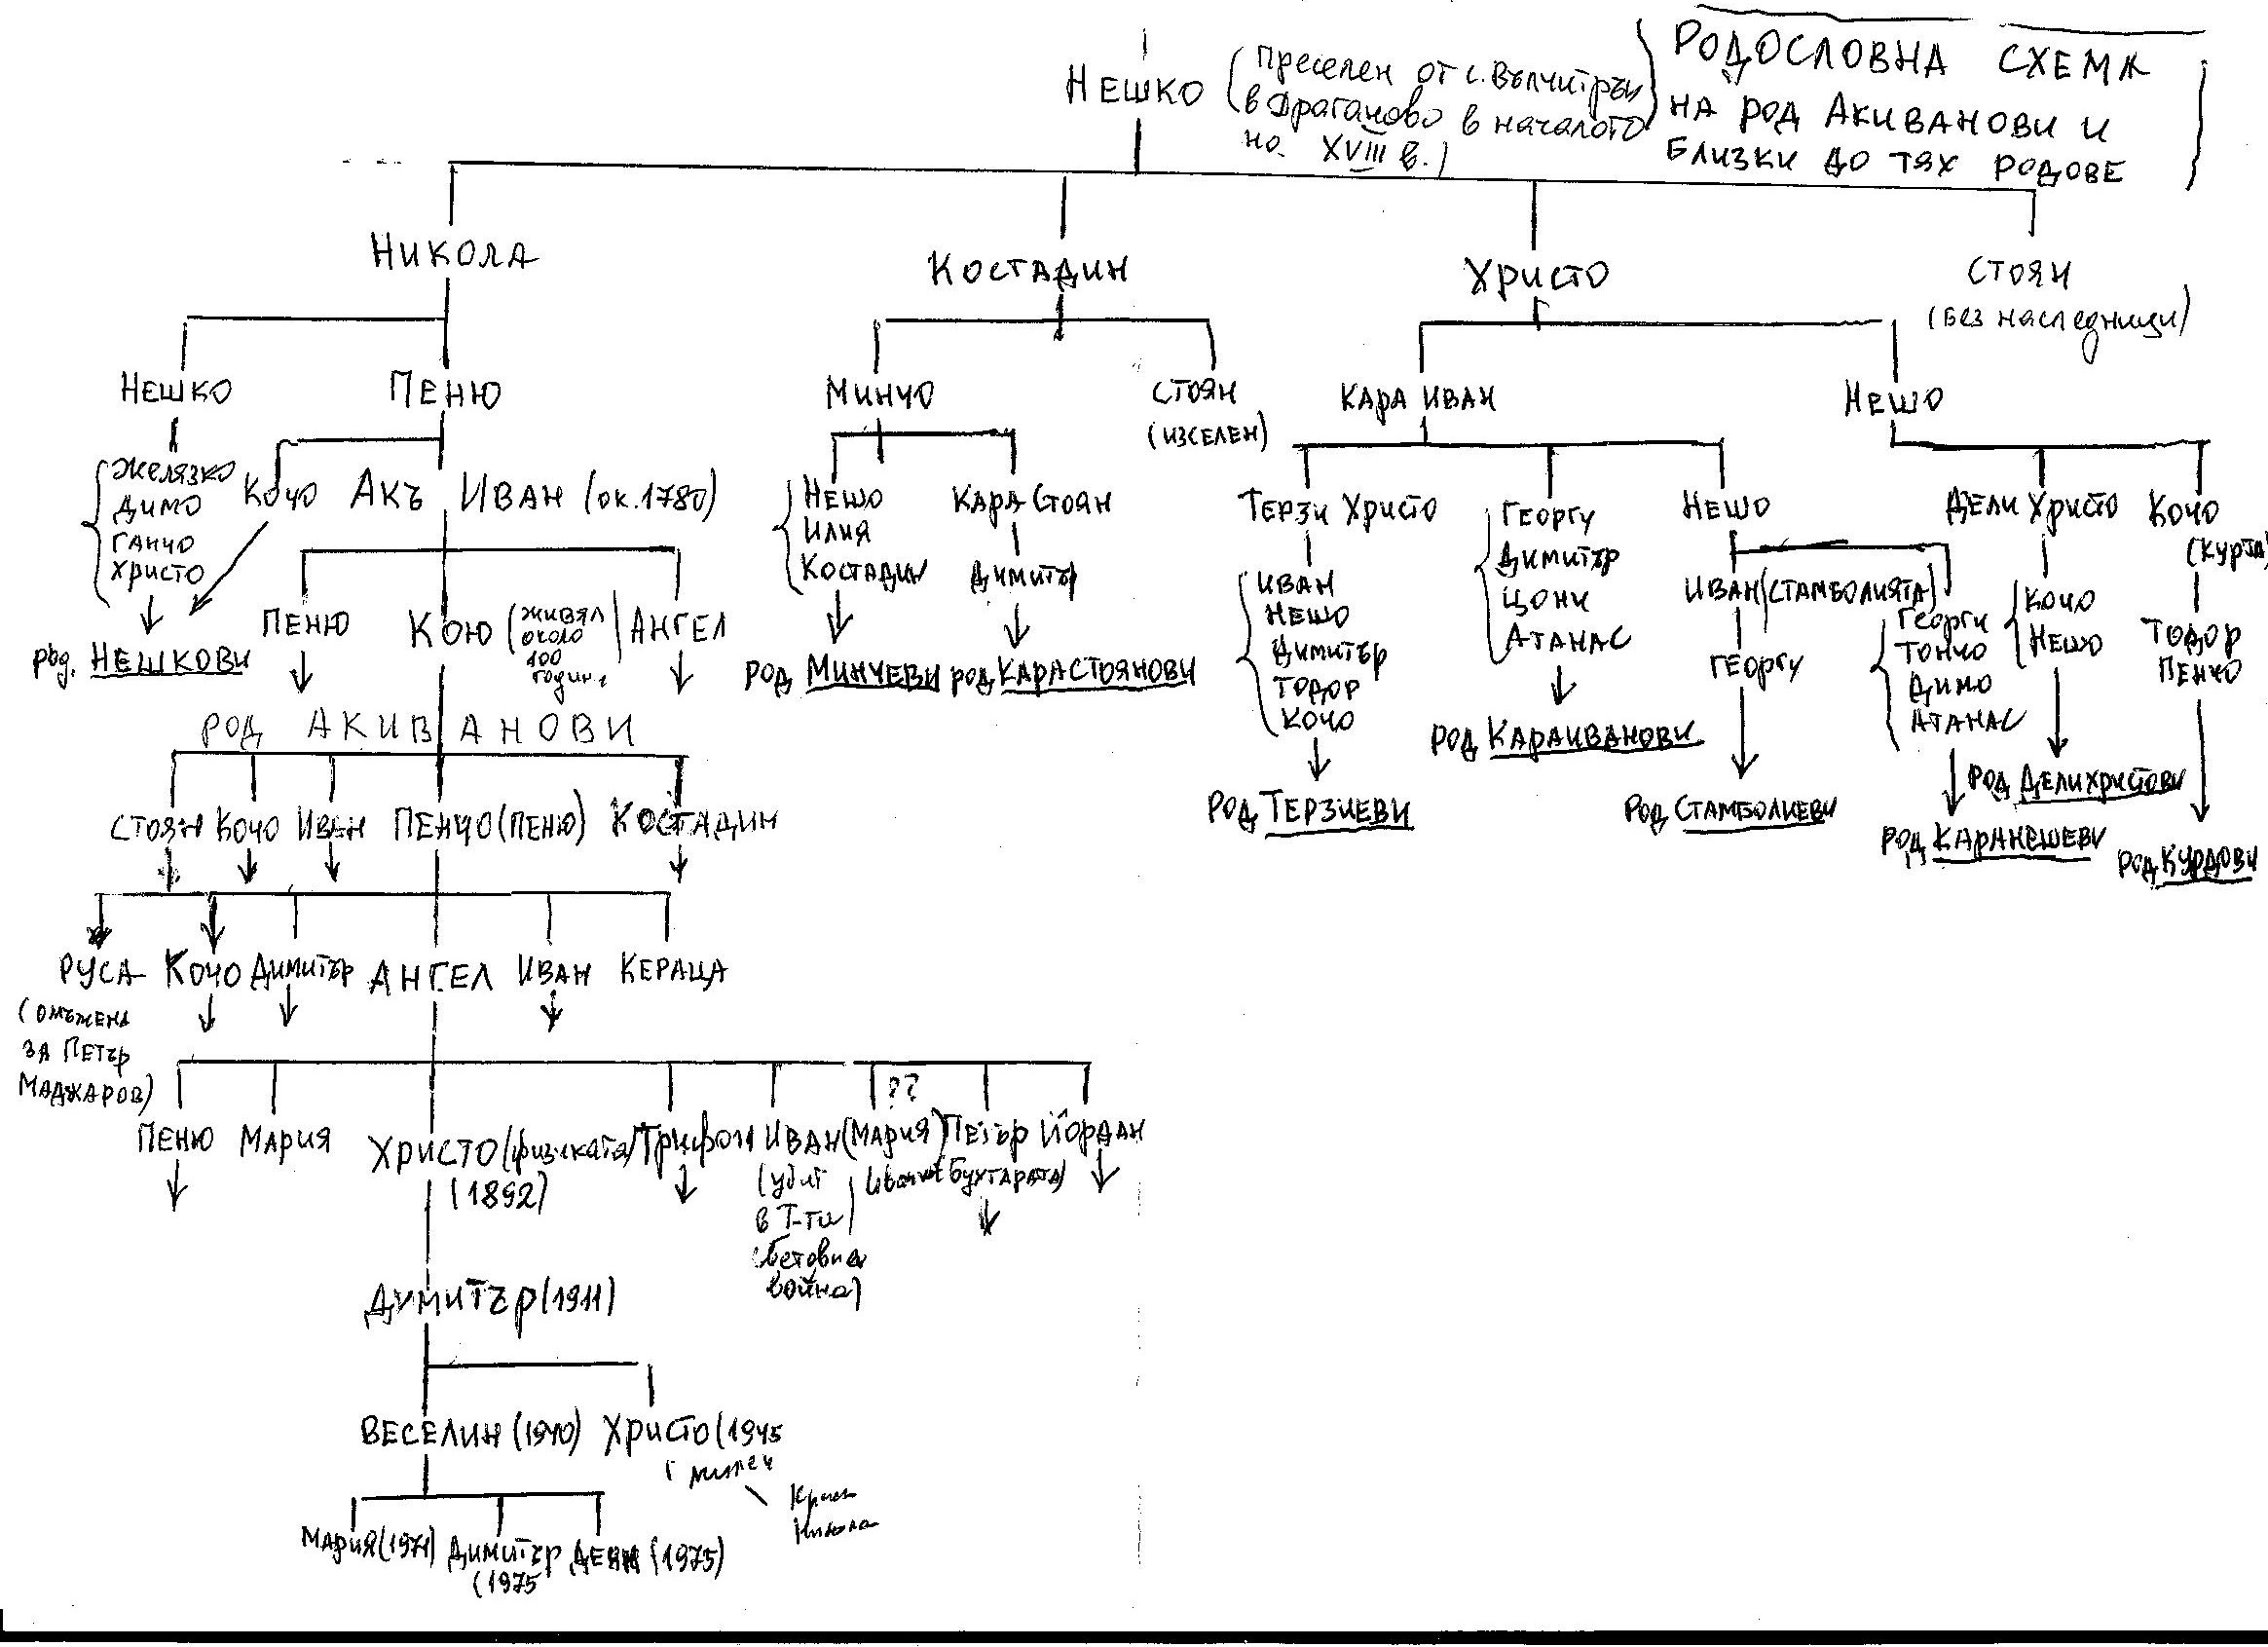 РОДОСЛОВНА СХЕМА
НА РОД АКИВАНОВИ И
БЛИЗКИ ДО ТЯХ РОДОВЕ
НЕШКО (преселен от с. Вълчитрън
в Драганово в началото
на XVIII в.)
НИКОЛА КОСТАДИН ХРИСТО СТОЯН
(без наследници)
НЕШКО ПЕНЮ МИНЧО СТОЯН КАРА ИВАН НЕШО
(ИЗСЕЛЕН)
ЖЕЛЯЗКО
ДИМО
ГАНЧО
ХРИСТО
КОЧО АКЪ ИВАН (ок. 1780)
НЕШО
ИЛИЯ
КОСТАДИН
КАРА СТОЯН
ДИМИТЪР
ТЕРЗИ ХРИСТО
ИВАН
НЕШО
ДИМИТЪР
ТОДОР
КОЧО
ГЕОРГУ
ДИМИТЪР
ЦОНИ
АТАНАС
НЕШО
ИВАН (СТАМБОЛИЯТА)
ГЕОРГУ
ГЕОРГИ
ТОНЧО
ДИМО
АТАНАС
ДЕЛИ ХРИСТО
КОЧО
НЕШО
КОЧО
(КУРТА)
ТОДОР
ПЕНЧО
ПЕНЮ КОЮ (живял
около
100
годин.
АНГЕЛ
род. НЕШКОВИ
род МИНЧЕВИ род КАРАСТОЯНОВИ
род ТЕРЗИЕВИ
род КАРАИВАНОВИ
род СТАМБОЛИЕВИ
род ДЕЛИХРИСТОВИ
род КАРАНЕШЕВИ
род КУРДОВИ
РОД АКИВАНОВИ
СТОЯН КОЧО ИВАН ПЕНЧО (ПЕНЮ) КОСТАДИН
РУСА КОЧО ДИМИТЪР АНГЕЛ ИВАН КЕРАЦА
(ОМЪЖЕНА
ЗА ПЕТЪР
МАДЖАРОВ)
??
ПЕНЮ МАРИЯ ХРИСТО (физиката) ТРИФОН ИВАН (МАРИЯ) ПЕТЪР ЙОРДАН
(1892)
(убит
в I-та
световна
война)
Бухтарата)
ДИМИТЪР (1911)
ВЕСЕЛИН (1940) ХРИСТО (1945
Никола
МАРИЯ (1971) ДИМИТЪР
(1975
ДЕЯН (1975)